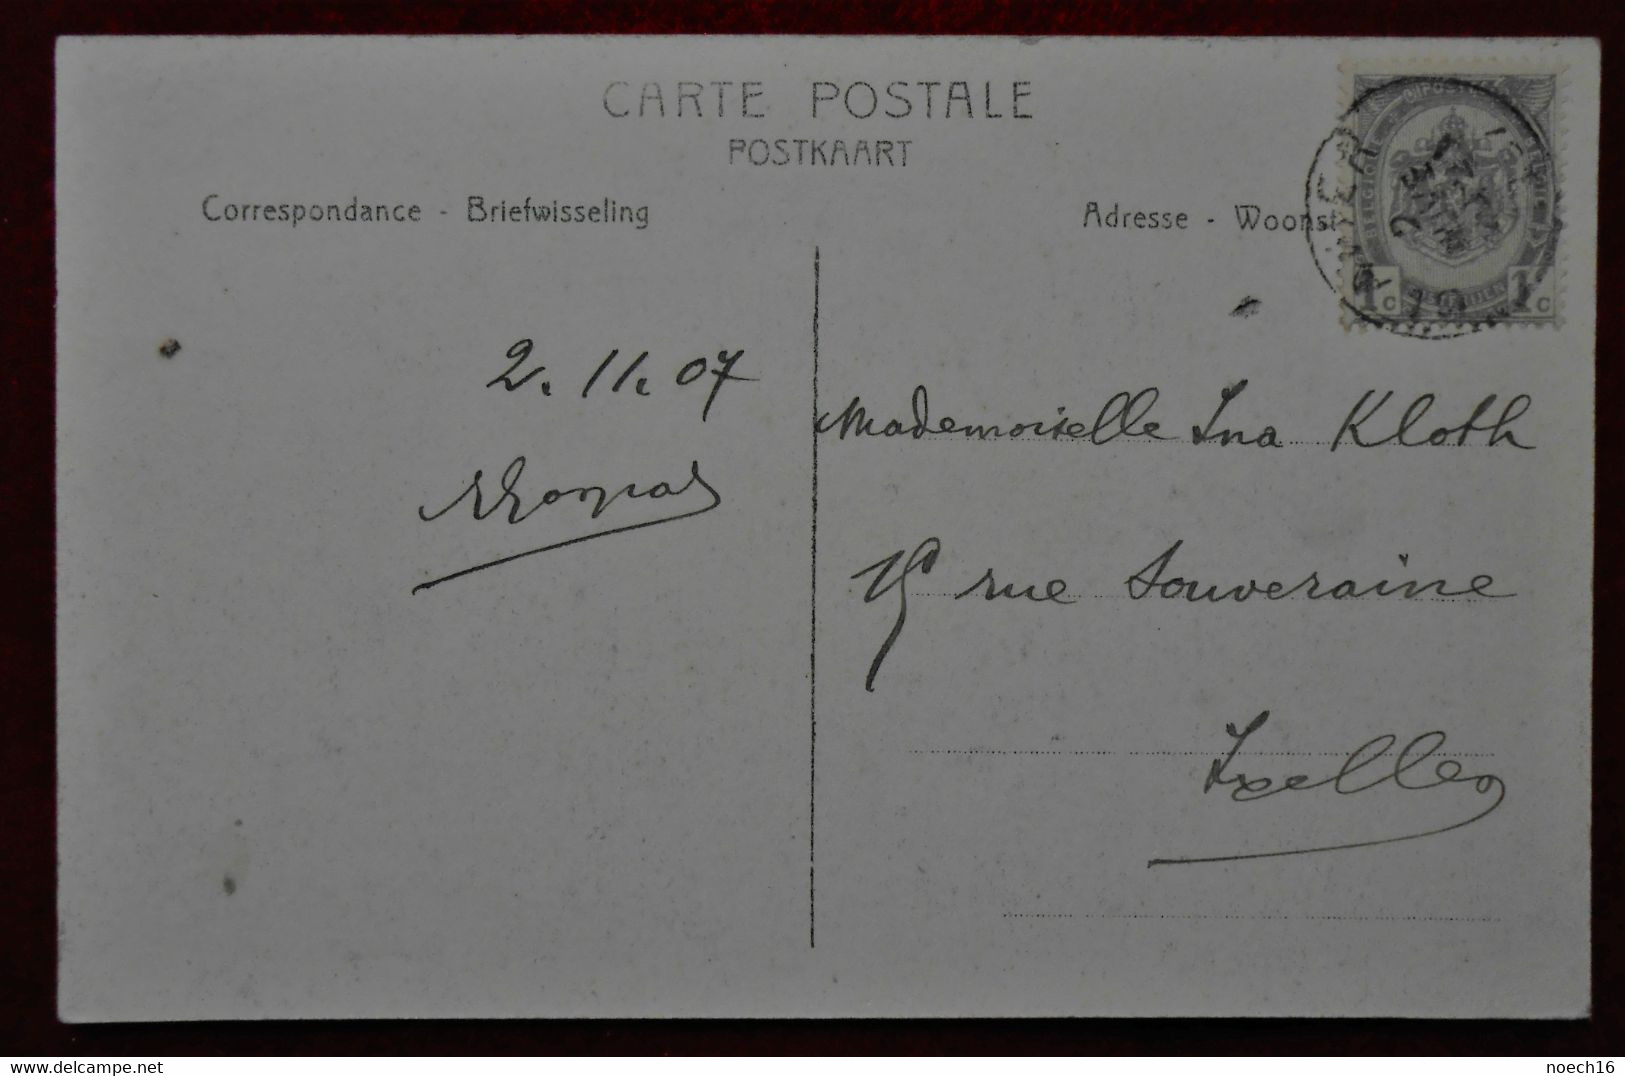 CARTE POSTALE
POSTKAART
Correspondance - Briefwisseling
Adresse - Woonst
1c 1c
2. 11. 07
Mademoiselle Ina Kloth
15 rue Souveraine
Ixelles
noech16
© delcampe.net